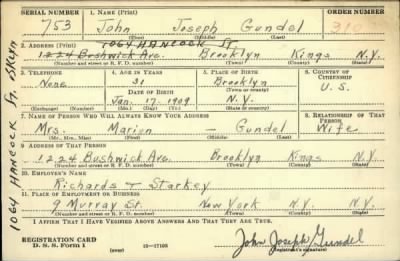 SERIAL NUMBER 1. NAME (Print) ORDER NUMBER
753 John Joseph Gundel
(First) (Middle) (Last)
1064 HANCOCK ST.
2. ADDRESS (Print)
1224 Bushwick Ave. Brooklyn Kings N.Y.
(Number and street or R. F. D. number) (Town) (County) (State)
3. TELEPHONE 4. AGE IN YEARS 5. PLACE OF BIRTH 6. COUNTRY OF CITIZENSHIP
None 31 Brooklyn
DATE OF BIRTH (Town or county) U.S.
Jan. 17 - 1909 N.Y.
(Exchange) (Number) (Mo.) (Day) (Yr.) (State or country)
7. NAME OF PERSON WHO WILL ALWAYS KNOW YOUR ADDRESS 8. RELATIONSHIP OF THAT PERSON
Mrs. Marion — Gundel Wife
(Mr., Mrs., Miss) (First) (Middle) (Last)
9. ADDRESS OF THAT PERSON
1224 Bushwick Ave. Brooklyn Kings N.Y.
(Number and street or R. F. D. number) (Town) (County) (State)
10. EMPLOYER'S NAME
Richards + Starkey
11. PLACE OF EMPLOYMENT OR BUSINESS
9 Murray St. New York N.Y. N.Y.
(Number and street or R. F. D. number) (Town) (County) (State)
I AFFIRM THAT I HAVE VERIFIED ABOVE ANSWERS AND THAT THEY ARE TRUE.
REGISTRATION CARD
D. S. S. Form 1 (over) 16—17105 John Joseph Gundel
(Registrant's signature)
1064 HANCOCK St. BKLYN